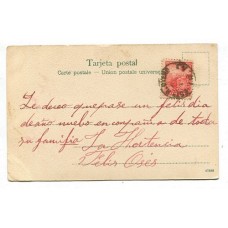 Tarjeta postal
Carte postale — Union postale universelle
Le deseo que pase un feliz dia
de año nuebo en compañia de toda
su familia La Hortencia
Felix